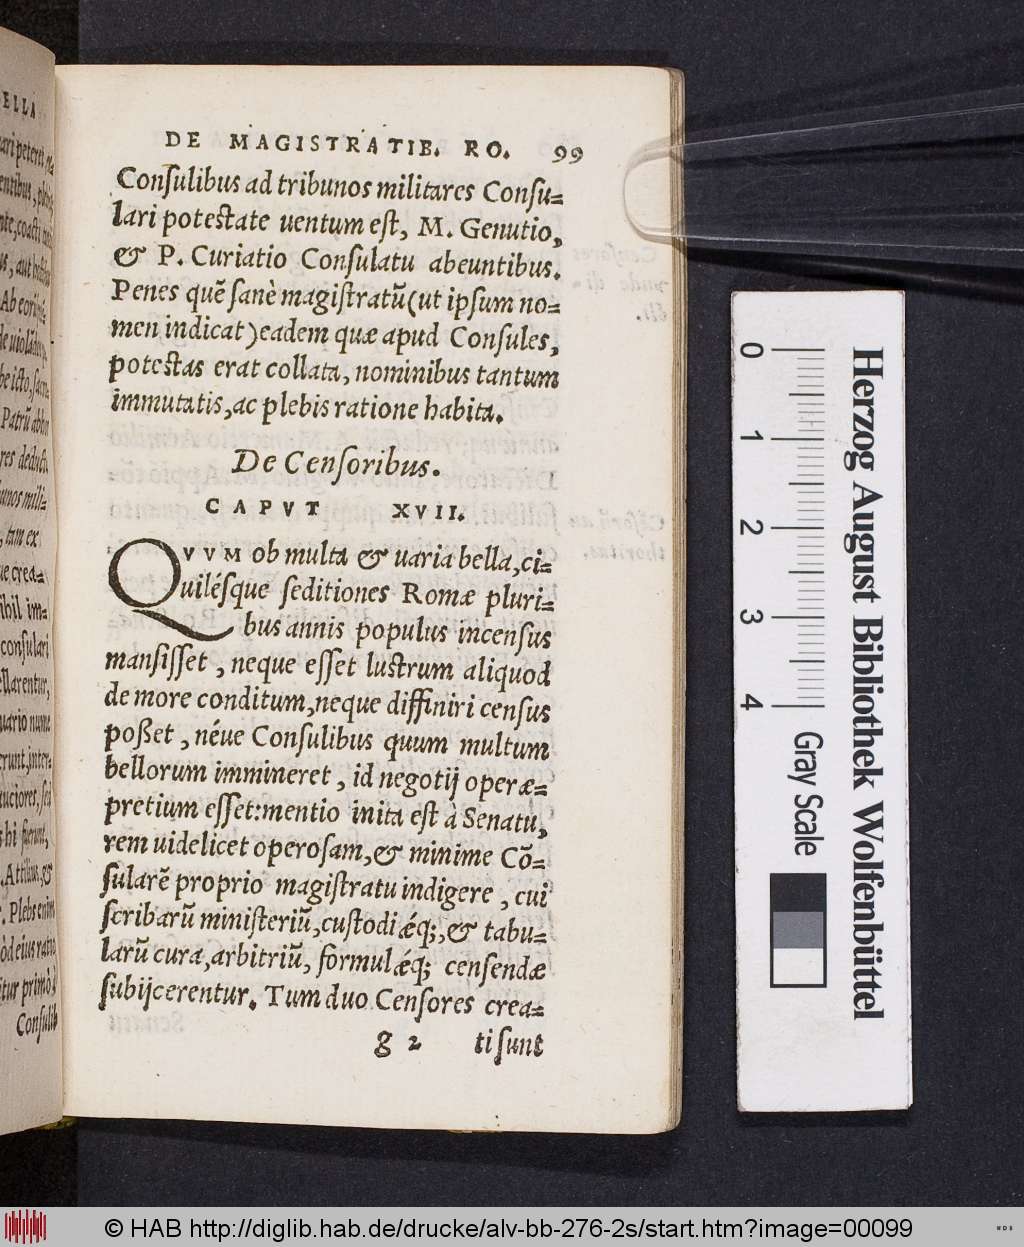 ELLA
DE MAGISTRATIB. RO. 99
Conſulibus ad tribunos militares Conſu=
lari poteſtate uentum eſt, M. Genutio,
& P. Curiatio Conſulatu abeuntibus.
Penes quē ſanè magiſtratū (ut ipſum no=
men indicat) eadem quæ apud Conſules,
poteſtas erat collata, nominibus tantum
immutatis, ac plebis ratione habita.
De Cenſoribus.
CAPVT XVII.
QVVM ob multa & uaria bella, ci=
uiléſque ſeditiones Romæ pluri=
bus annis populus incenſus
manſiſſet, neque eſſet luſtrum aliquod
de more conditum, neque diffiniri cenſus
poßet, néue Conſulibus quum multum
bellorum immineret, id negotij operæ=
pretium eſſet: mentio inita eſt à Senatu,
rem uidelicet operoſam, & minime Cō=
ſularē proprio magiſtratu indigere, cui
ſcribarū miniſteriū, cuſtodiǽq;, & tabu=
larū cura, arbitriū, formulǽq; cenſendæ
ſubijcerentur. Tum duo Cenſores crea=
g 2 ti ſunt
0 1 2 3 4
Gray Scale
Herzog August Bibliothek Wolfenbüttel
© HAB http://diglib.hab.de/drucke/alv-bb-276-2s/start.htm?image=00099